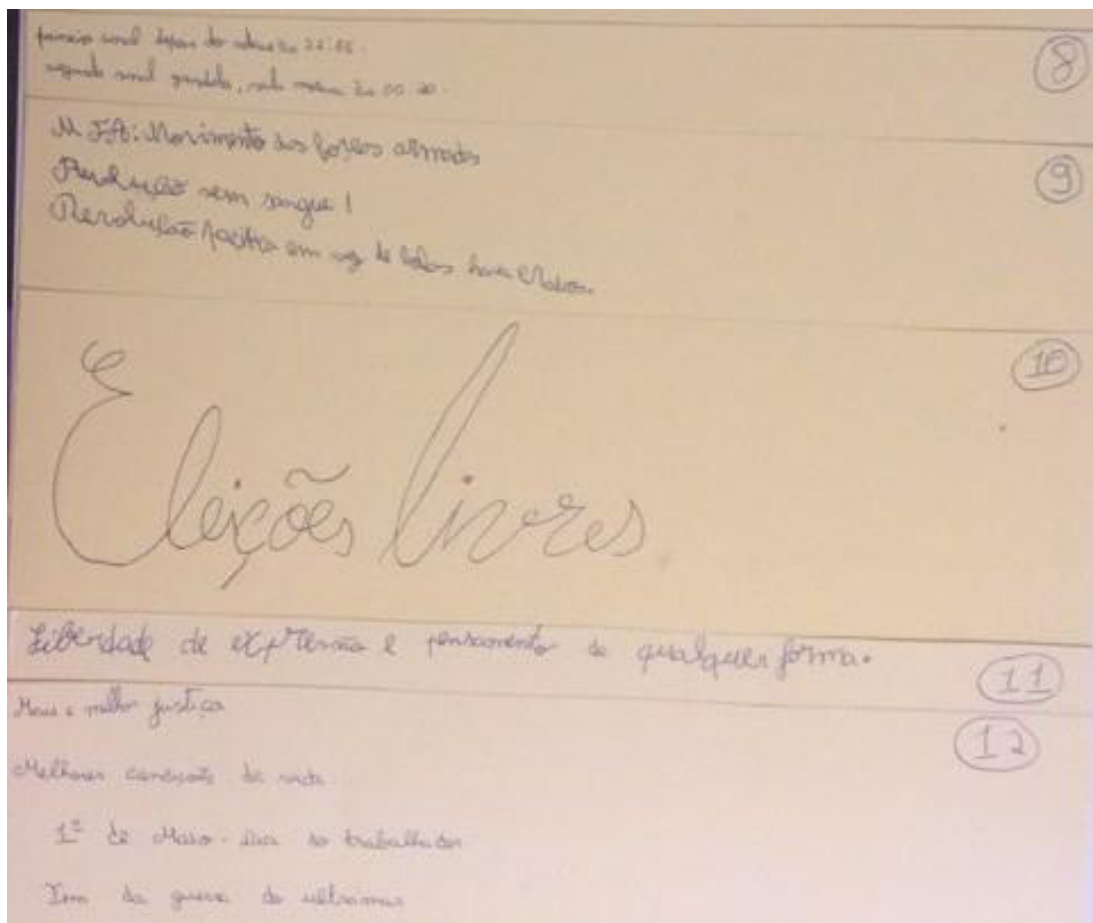 primeiro sinal depois do adeus às 22:55.
segundo sinal grandola, vila morena às 00:20.
8
MFA: Movimento das forças armadas
9
Revolução sem sangue!
Revolução pacifica em vez de balas havia cravos.
10
Eleições livres
Liberdade de expressão e pensamento de qualquer forma.
11
Mais e melhor justiça
12
Melhores condições de vida
1º de Maio - Dia do trabalhador
da guerra do ultramar